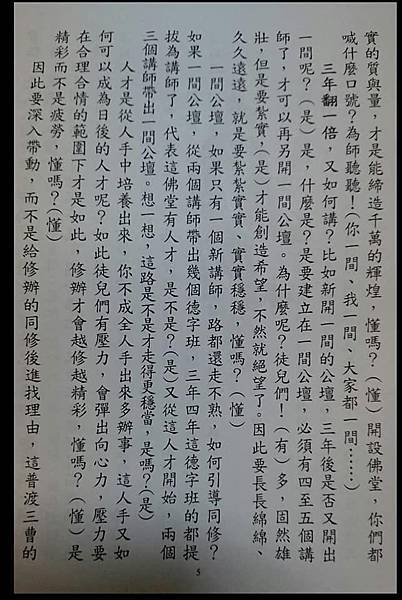 實的質與量，才是能締造千萬的輝煌，懂嗎？（懂）開設佛堂，你們都
喊什麼口號？為師聽聽！（你一間、我一間、大家都一間……）
三年翻一倍，又如何講？比如新開一間的公壇，三年後是否又開出
一間呢？（是）是，什麼是？是要建立在一間公壇，必須有四至五個講
師了，才可以再另開一間公壇。為什麼呢？徒兒們！（有）多，固然雄
壯，但是要紮實，（是）才能創造希望，不然就絕望了。因此要長長綿綿、
久久遠遠，就是要紮紮實實、實實穩穩，懂嗎？（懂）
一間公壇，如果只有一個新講師，路都還走不熟，如何引導同修？
如果一間公壇，從兩個講師帶出幾個德字班，三年四年這德字班的都提
拔為講師了，代表這佛堂有人才，是不是？（是）又從這人才開始，兩個
三個講師帶出一間公壇。想一想，這路是不是才走得更穩當，是嗎？（是）
人才是從人手中培養出來，你不成全人手出來多辦事，這人手又如
何可以成為日後的人才呢？如此徒兒們有壓力，會彈出向心力，壓力要
在合理合情的範圍下才是如此，修辦才會越修越精彩，懂嗎？（懂）是
精彩而不是疲勞，懂嗎？（懂）
因此要深入帶動，而不是給修辦的同修後進找理由，這普渡三曹的
5